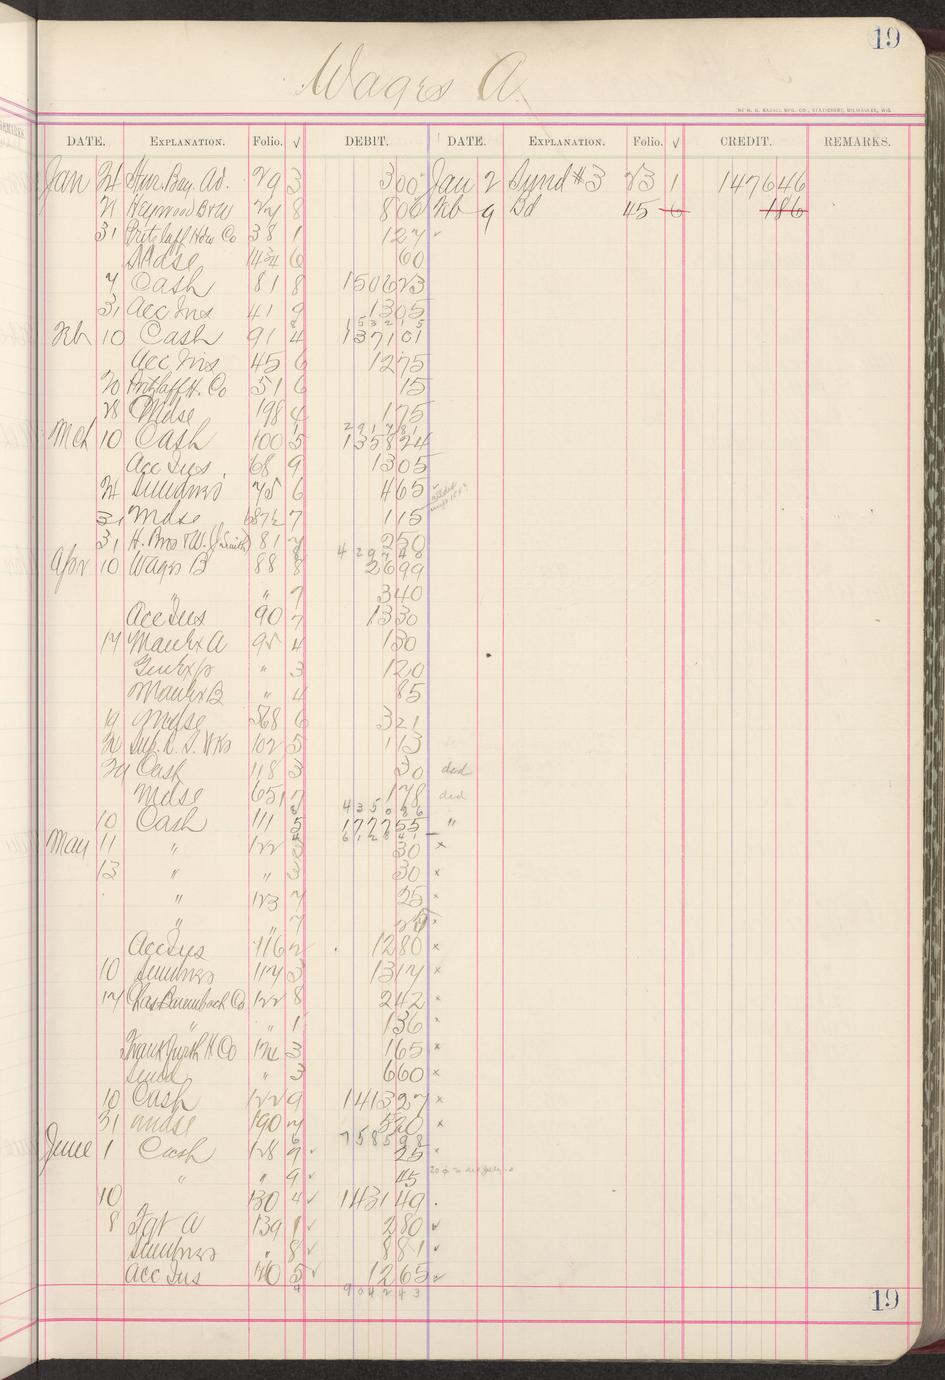 19
Wages A.
THE H. H. WEST MFG. CO., STATIONERS, MILWAUKEE, WIS.
DATE. EXPLANATION. Folio. √ DEBIT. DATE. EXPLANATION. Folio. √ CREDIT. REMARKS.
Jan 24 Adv. 29 3 3 00 Jan 2 Sund #3 23 1 1476 46
21 Heywood B & W 24 8 8 06 Feb 9 Bd 45 6 1 86
31 Pritzlaff Hdw Co 38 1 1 27
Mdse 6 60
7 Cash 81 8 1506 23
31 Acc Ins 41 9 13 05
1532 15
Feb 10 Cash 91 4 1371 01
Acc Ins 45 6 12 75
20 Pritzlaff H. Co 51 6 15
28 Mdse 198 4 1 75
2917 81
Mch 10 Cash 100 5 1358 24
Acc Ins 68 9 13 05
24 Sundries 75 6 4 65
31 Mdse 7 1 15
31 H. Bros & W. (J Smith) 81 7 2 50
4297 48
Apr 10 Wages B 88 8 26 99
" 7 3 40
Acc Ins 90 7 13 30
17 Man Ex A 95 4 1 30
Gen Ex " 3 1 20
Man Ex B " 4 85
19 Mdse 568 6 3 21
102 5 1 13
29 Cash 118 3 30 ded
Mdse 651 7 1 78 ded
4350 86
10 Cash 111 5 1777 55 "
6128 41
May 11 " 122 3 30 x
13 " " 3 30 x
" 123 7 25 x
" " 7 x
Acc Ins 116 2 12 80 x
10 Sundries 117 3 13 17 x
17 122 8 2 42 x
" " 1 1 36 x
Frankfurth H Co 3 1 65 x
Sund " 3 6 60 x
10 Cash 122 9 1413 27 x
31 Mdse 190 7 5 20 x
7585 98
June 1 Cash 128 7 √ 25 x
" " 9 √ 45
10 130 4 √ 1431 49
8 Fgt A 139 1 √ 2 80 √
Sundries " 8 √ 8 81 √
Acc Ins 140 5 √ 12 65 √
9042 43
19